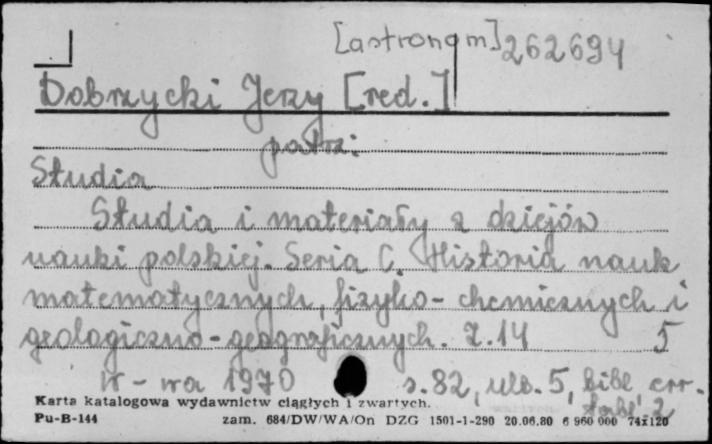 [astronom] 262694
Dobrzycki Jerzy [red.]
patrz:
Studia
Studia i materiały z dziejów
nauki polskiej. Seria C. Historia nauk
matematycznych, fizyko-chemicznych i
geologiczno-geograficznych. Z. 14 5
W-wa 1970 s. 82, ulb. 5, bibl err.
tabl. 2
Karta katalogowa wydawnictw ciągłych i zwartych.
Pu-B-144 zam. 684/DW/WA/On DZG 1501-1-290 20.06.80 6 960 000 74x120